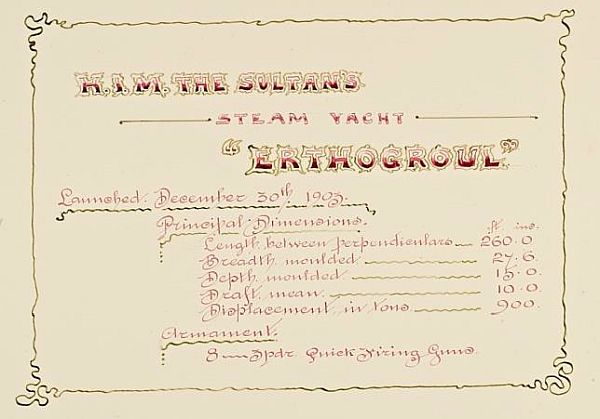 H.I.M. THE SULTAN'S
STEAM YACHT
"ERTHOGROUL"
Launched. December 30th 1903.
Principal Dimensions.
ft. ins.
Length between perpendiculars 260.0
Breadth moulded 27.6
Depth moulded 19.0
Draft mean 10.0
Displacement in tons 900.
Armament.
8 — 3pdr. Quick Firing Guns.